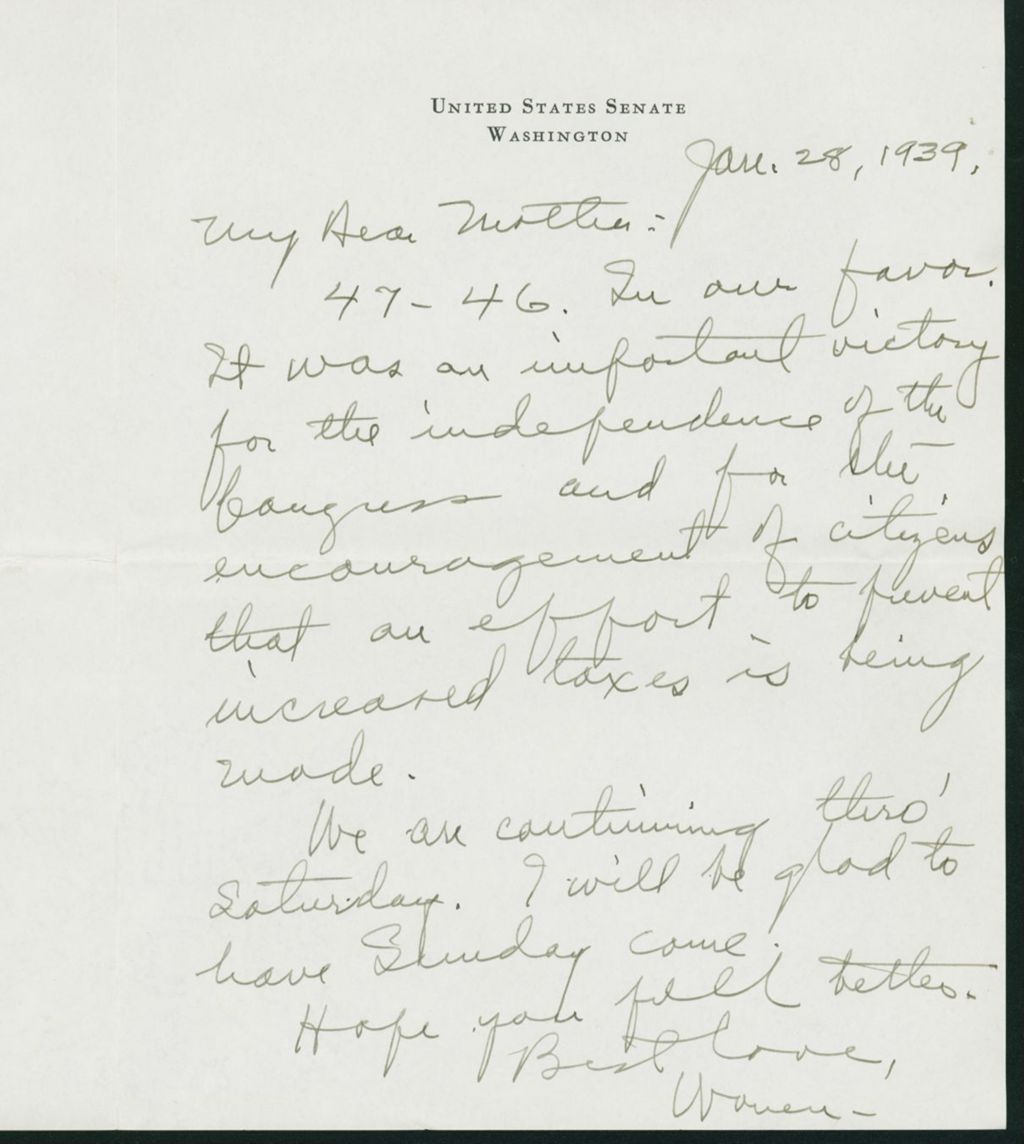 UNITED STATES SENATE
WASHINGTON
Jan. 28, 1939.
My Dear Mother:
47-46. In our favor.
It was an important victory
for the independence of the
Congress and for the
encouragement of citizens
that an effort to prevent
increased taxes is being
made.
We are continuing thro'
Saturday. I will be glad to
have Sunday come.
Hope you feel better.
Best love,
Warren-